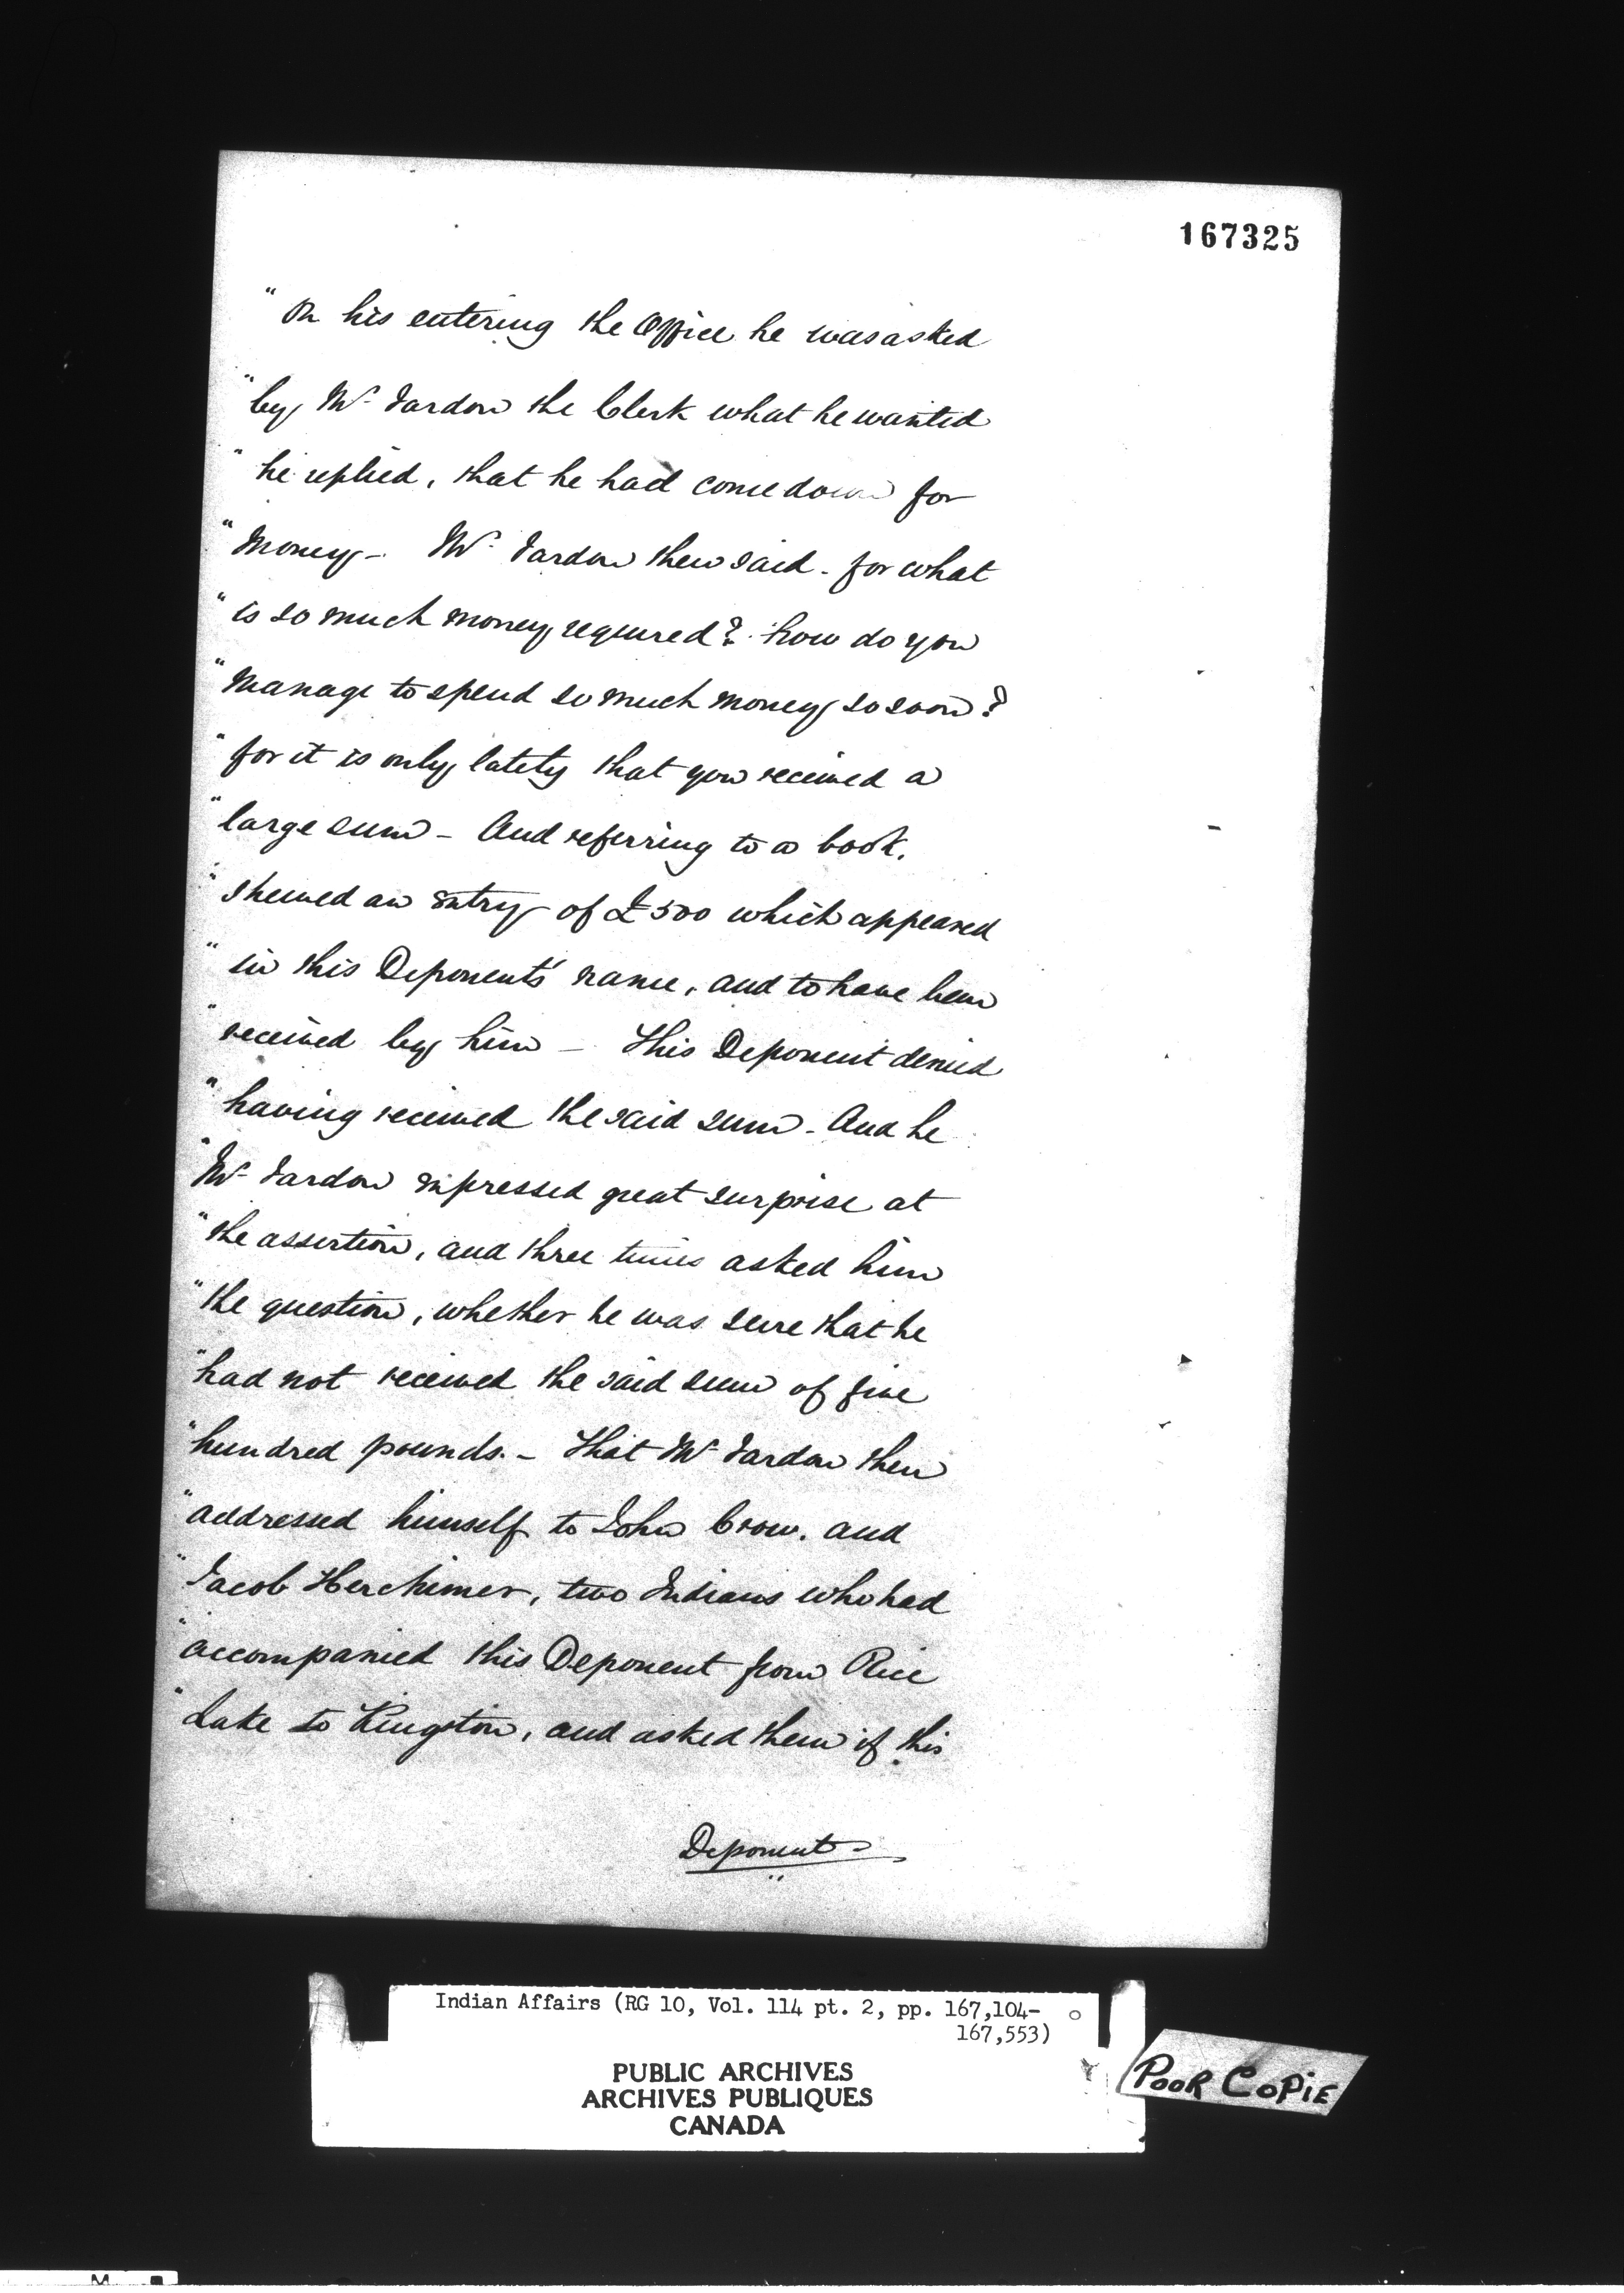 167325
" On his entering the Office he was asked
" by Mr Jardon the Clerk what he wanted
" he replied, that he had come down for
" Money - Mr Jardon then said - for what
" is so much money required? how do you
" manage to spend so much money so soon?
" for it is only lately that you received a
" large sum - And referring to a book,
" shewed an entry of £500 which appeared
" in this Deponents' name, and to have been
" received by him - This Deponent denied
" having received the said sum - And he
" Mr Jardon expressed great surprise at
" the assertion, and three times asked him
" the question, whether he was sure that he
" had not received the said sum of five
" hundred pounds. - That Mr Jardon then
" addressed himself to John Crow. and
" Jacob Herchimer, two Indians who had
" accompanied this Deponent from Rice
" Lake to Kingston, and asked them if this
Deponent
Indian Affairs (RG 10, Vol. 114 pt. 2, pp. 167,104-
167,553)
PUBLIC ARCHIVES
ARCHIVES PUBLIQUES
CANADA
POOR COPIE